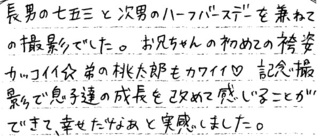 長男の七五三と次男のハーフバースデーを兼ねて
の撮影でした。お兄ちゃんの初めての袴姿
カッコイイ☆弟の桃太郎もカワイイ♡ 記念撮
影で息子達の成長を改めて感じることが
できて、幸せだなあと実感しました。